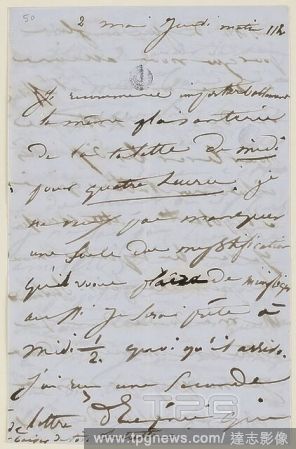 50
2 mai Jeudi matin 11h
Je recommence imperturbablement
la même plaisanterie
de la toilette de midi
pour quatre heures. je
ne veux pas manquer
une seule des mystifications
qu'il vous plaira de m'infliger
aussi je serai prête à
midi ½ quoi qu'il arrive.
J'ai reçu une seconde
lettre d'Eugénie qui
TPG
www.tpgnews.com / 達志影像